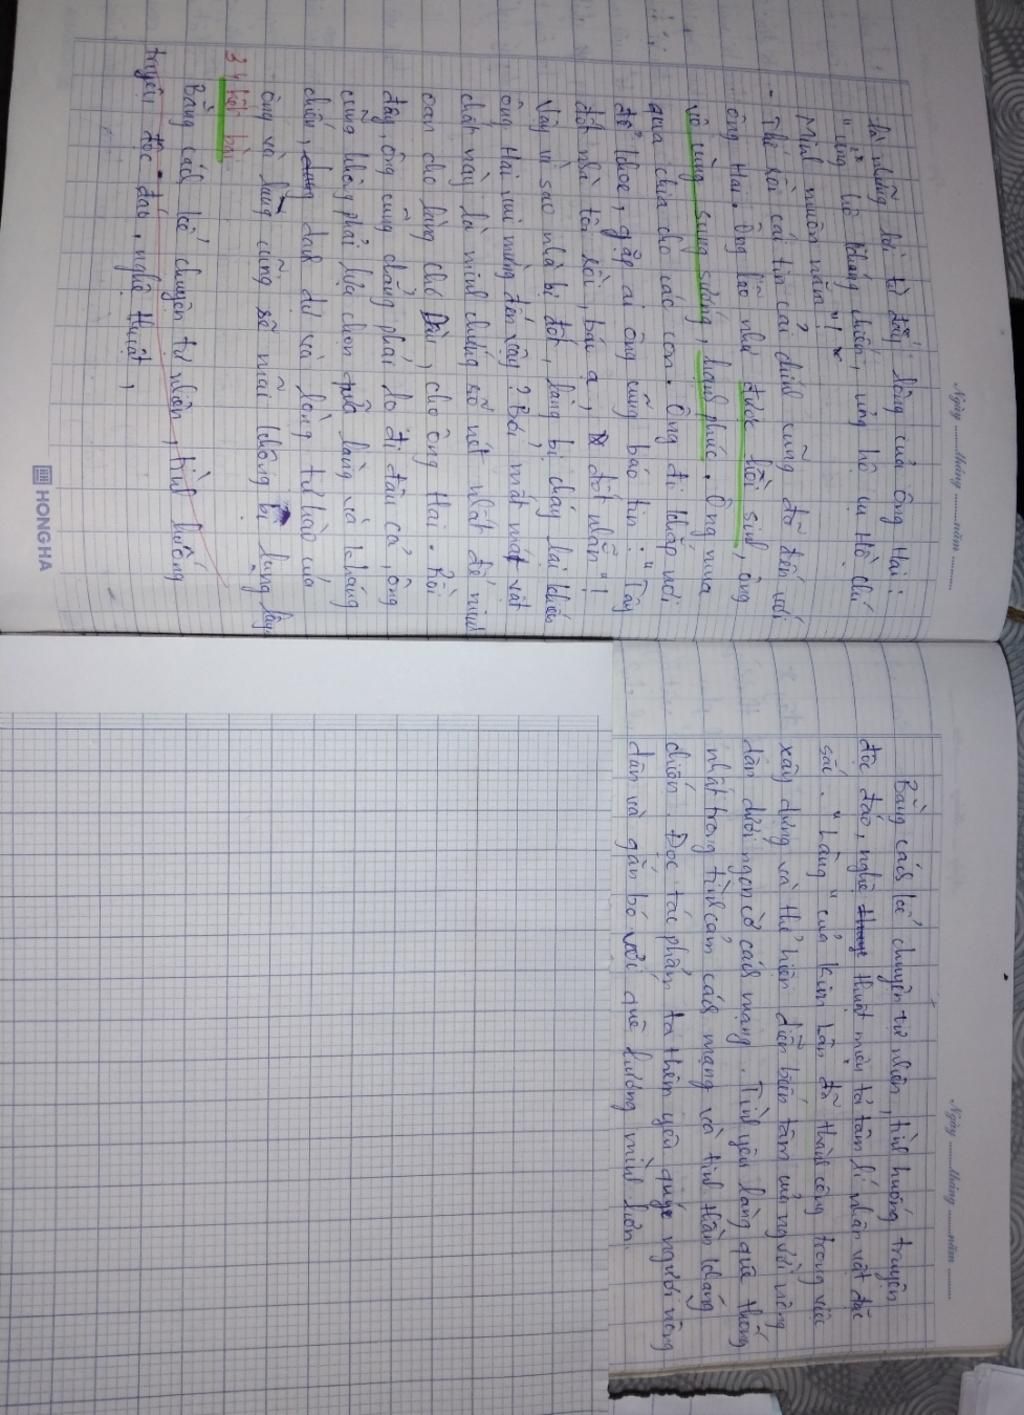 Ngày ........tháng ........năm ..........
là những lời từ đáy lòng của ông Hai:
"ủng hộ kháng chiến, ủng hộ cụ Hồ Chí
Minh muôn năm"!
- Thế rồi cái tin cải chính cũng đã đến với
ông Hai. Ông lão như được hồi sinh, ông
vô cùng sung sướng, hạnh phúc. Ông mua
quà chia cho các con. Ông đi khắp nơi
để khoe, gặp ai ông cũng báo tin: "Tây
đốt nhà tôi rồi, bác ạ, đốt nhẵn"!
Vậy vì sao nhà bị đốt, làng bị cháy lại khiến
ông Hai vui mừng đến vậy? Bởi mất mát vật
chất này là minh chứng rõ nét nhất để minh
oan cho làng chợ Dầu, cho ông Hai. Rồi
đây, ông cũng chẳng phải lo đi đâu cả, ông
cũng không phải lựa chọn giữa làng và kháng
chiến, danh dự và lòng tự hào của
ông và làng cũng sẽ mãi không bị lung lay.
3, kết bài
Bằng cách kể chuyện tự nhiên, tình huống
truyện độc đáo, nghệ thuật,
HONG HA
Ngày ........tháng ........năm ..........
Bằng cách kể chuyện tự nhiên, tình huống truyện
độc đáo, nghệ thuật miêu tả tâm lí nhân vật đặc
sắc. "Làng" của Kim Lân đã thành công trong việc
xây dựng và thể hiện diễn biến tâm của người nông
dân dưới ngọn cờ cách mạng. Tình yêu làng quê thống
nhất trong tình cảm cách mạng và tinh thần kháng
chiến. Đọc tác phẩm ta thêm yêu quý người nông
dân và gắn bó với quê hương mình hơn.